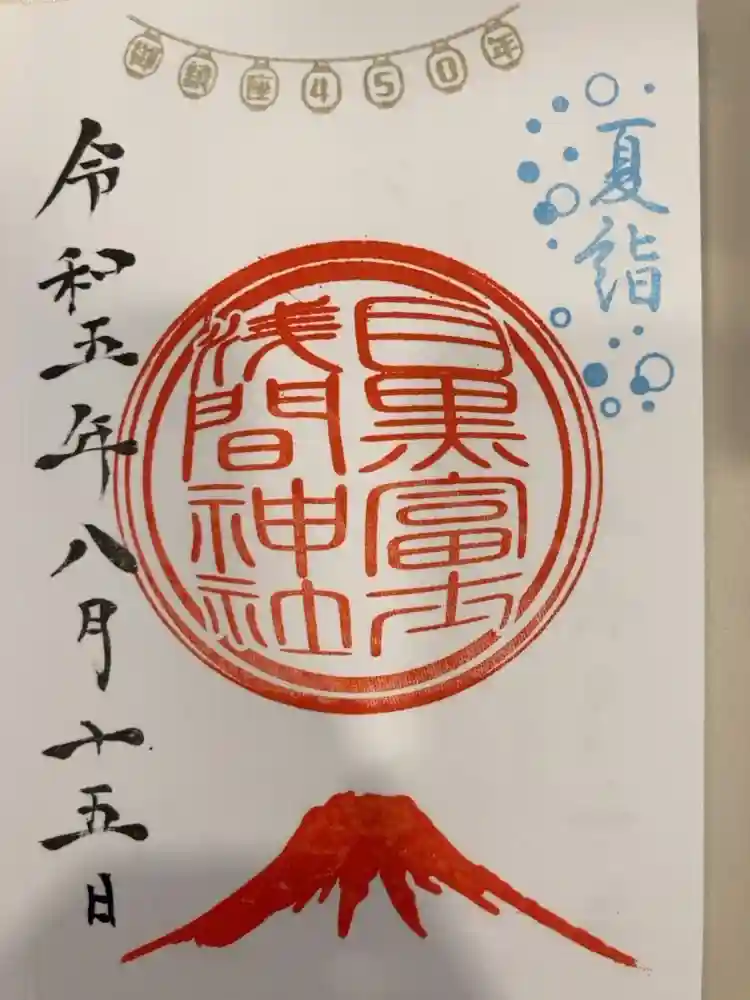 御鎮座450年
夏詣
目黒富士
浅間神社
令和五年八月十五日